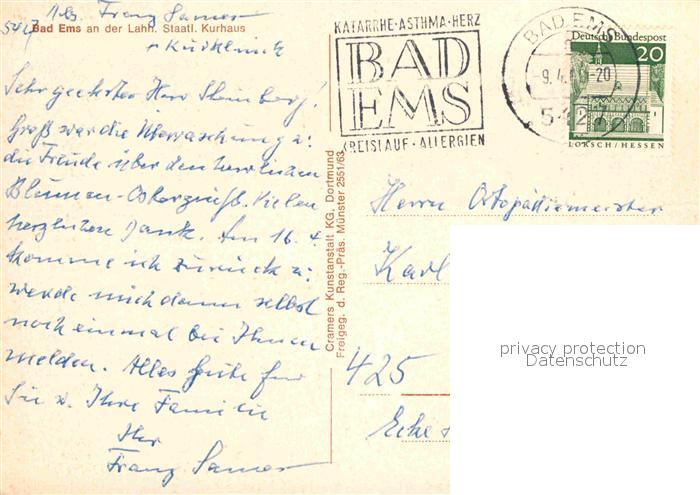 Abs. Franz Sames
5427 Bad Ems an der Lahn. Staatl. Kurhaus
Kurklinik
Sehr geehrter Herr Steinberg!
Groß war die Überraschung u.
die Freude über den herrlichen
Blumen-Ostergruß. Vielen
herzlichen Dank. Am 16. 4.
komme ich zurück u.
werde mich dann selbst
noch einmal bei Ihnen
melden. Alles Gute für
Sie u. Ihre Familie
Ihr
Franz Sames
Cramers Kunstanstalt KG, Dortmund
Freigeg. d. Reg.-Präs. Münster 2551/63
KATARRHE·ASTHMA·HERZ
BAD
EMS
KREISLAUF · ALLERGIEN
BAD EMS
-9.4. -20
5427
Deutsche Bundespost
20
LORSCH / HESSEN
Herrn Orthopädiemeister
Karl
425
Ecke
privacy protection
Datenschutz